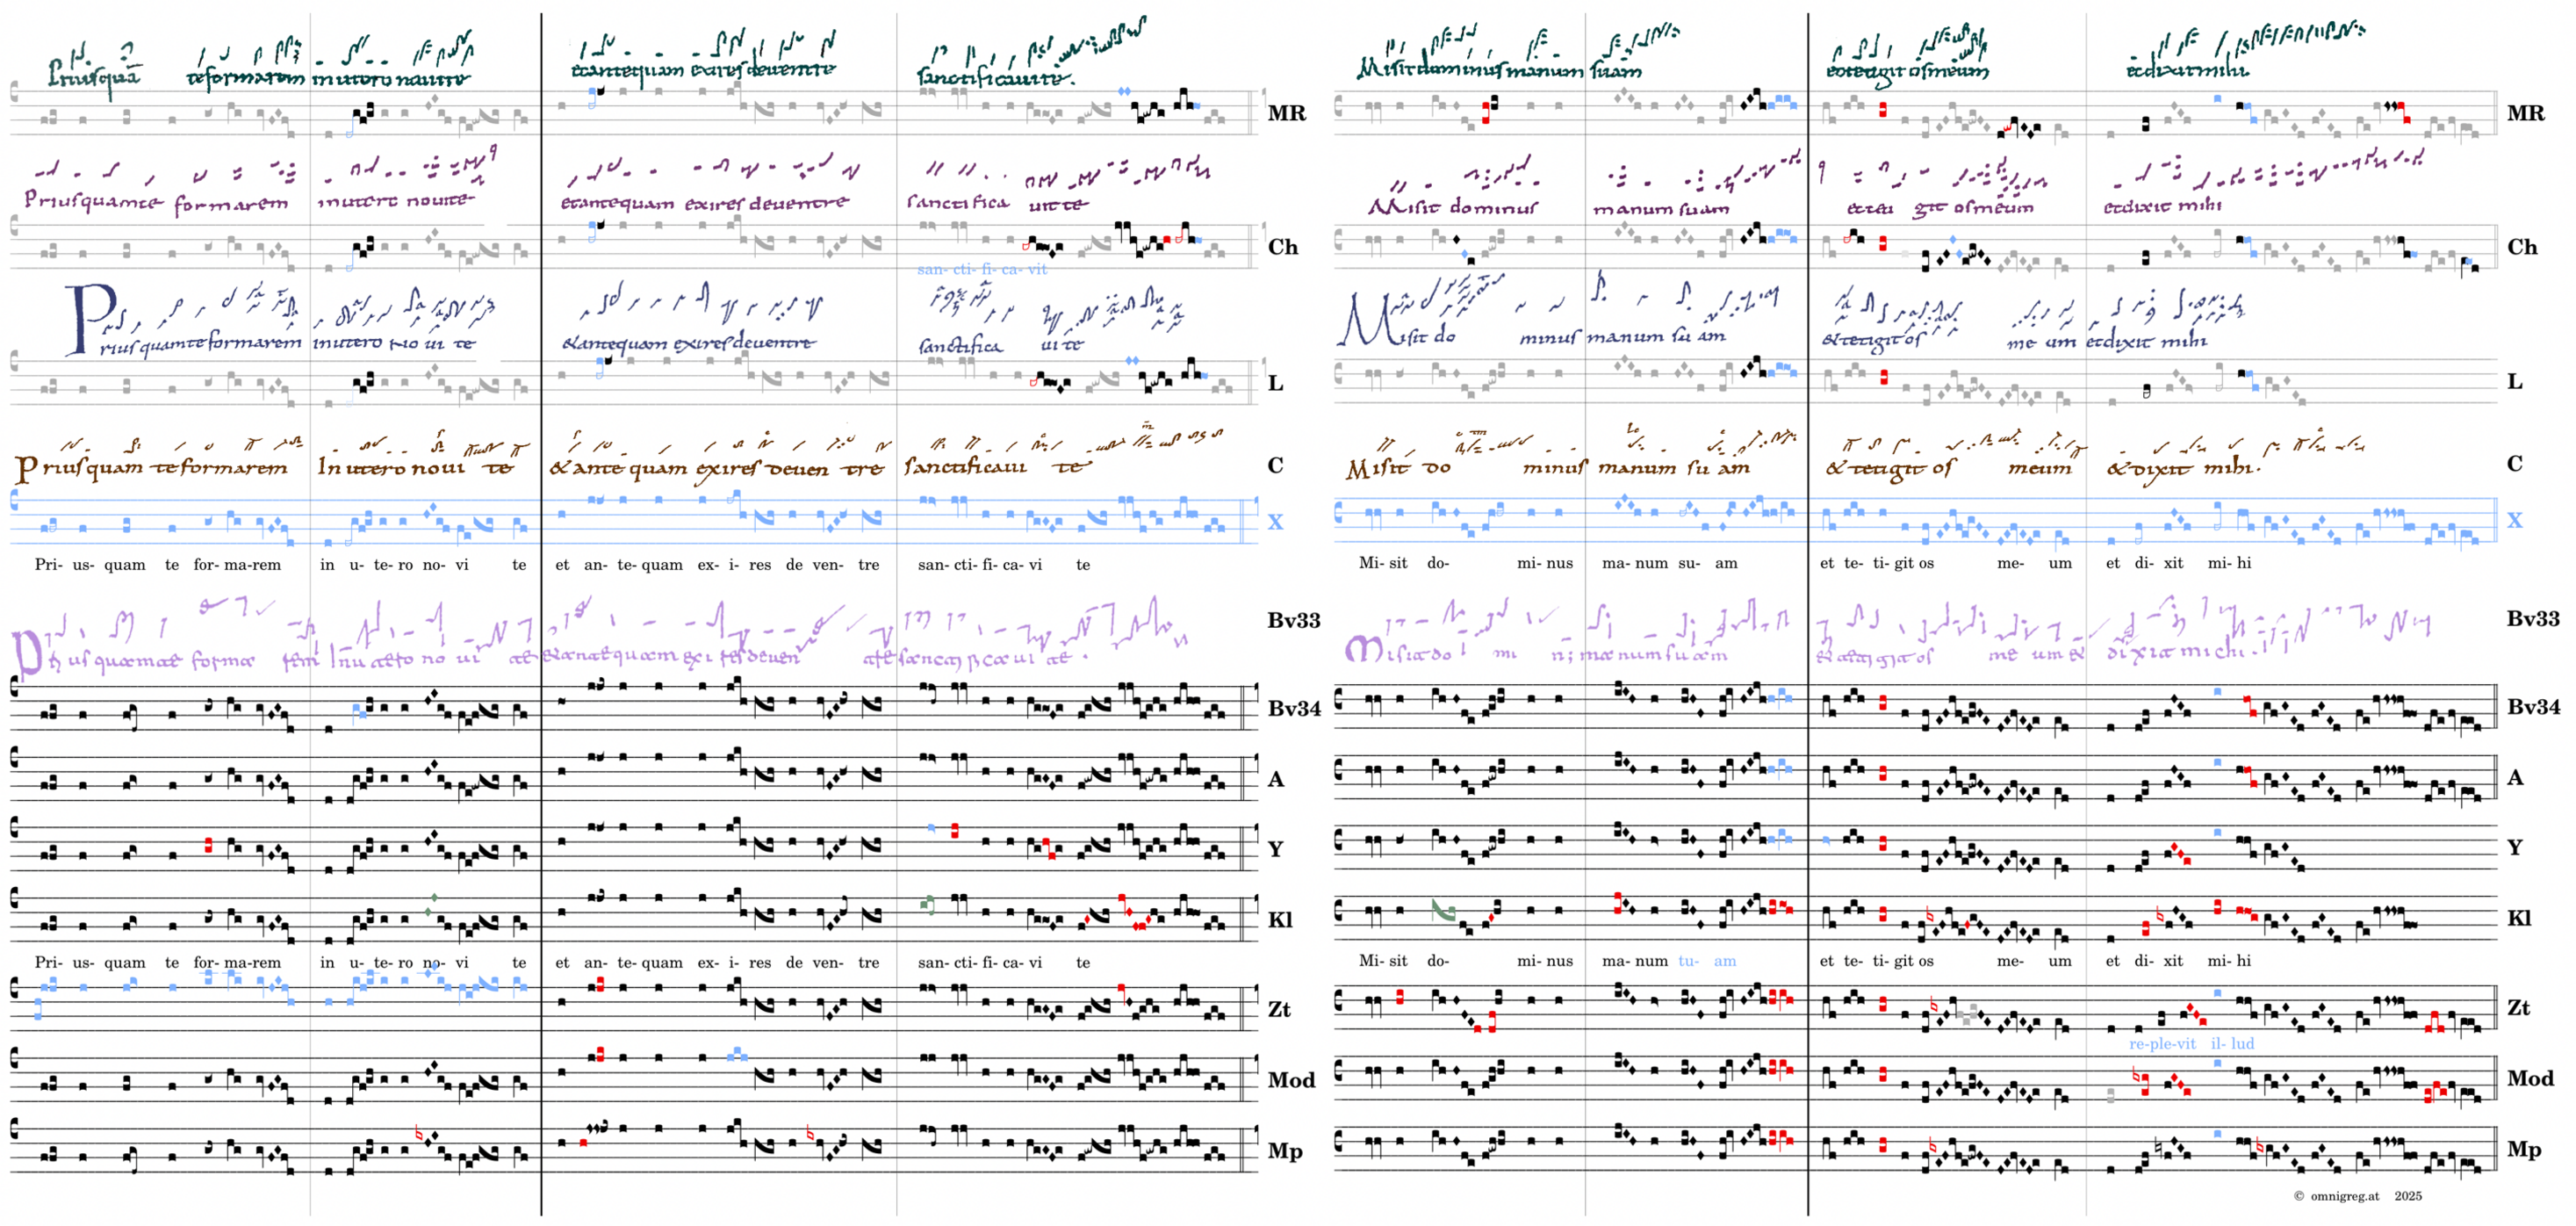 Priusquã te formarem in utero noui te et antequam exires deuentre sanctificauite. Misit dominus manum suam et tetigit os meum et dixit mihi
MR MR
Priusquamte formarem in utero nouite et antequam exires deuentre sanctifica uitte Misit dominus manum suam et teti git os meum et dixit mihi
Ch Ch
san- cti- fi- ca- vit
Priusquamteformarem in utero no ui te &antequam exiresdeuentre sanctifica ui te Misit do minus manum su am &tetigit os me um et dixit mihi
L L
Priusquam te formarem In utero noui te &ante quam exires deuen tre sanctificaui te Misit do minus manum su am & tetigit os meum & dixit mihi.
C C
X X
Pri- us- quam te for- ma-rem in u- te- ro no- vi te et an- te- quam ex- i- res de ven- tre san- cti- fi- ca- vi te Mi- sit do- mi- nus ma- num su- am et te- ti- git os me- um et di- xit mi- hi
Bv33 Bv33
Bv34 Bv34
A A
Y Y
Kl Kl
Pri- us- quam te for- ma-rem in u- te- ro no- vi te et an- te- quam ex- i- res de ven- tre san- cti- fi- ca- vi te Mi- sit do- mi- nus ma- num tu- am et te- ti- git os me- um et di- xit mi- hi
Zt Zt
re-ple-vit il- lud
Mod Mod
Mp Mp
© omnigreg.at 2025